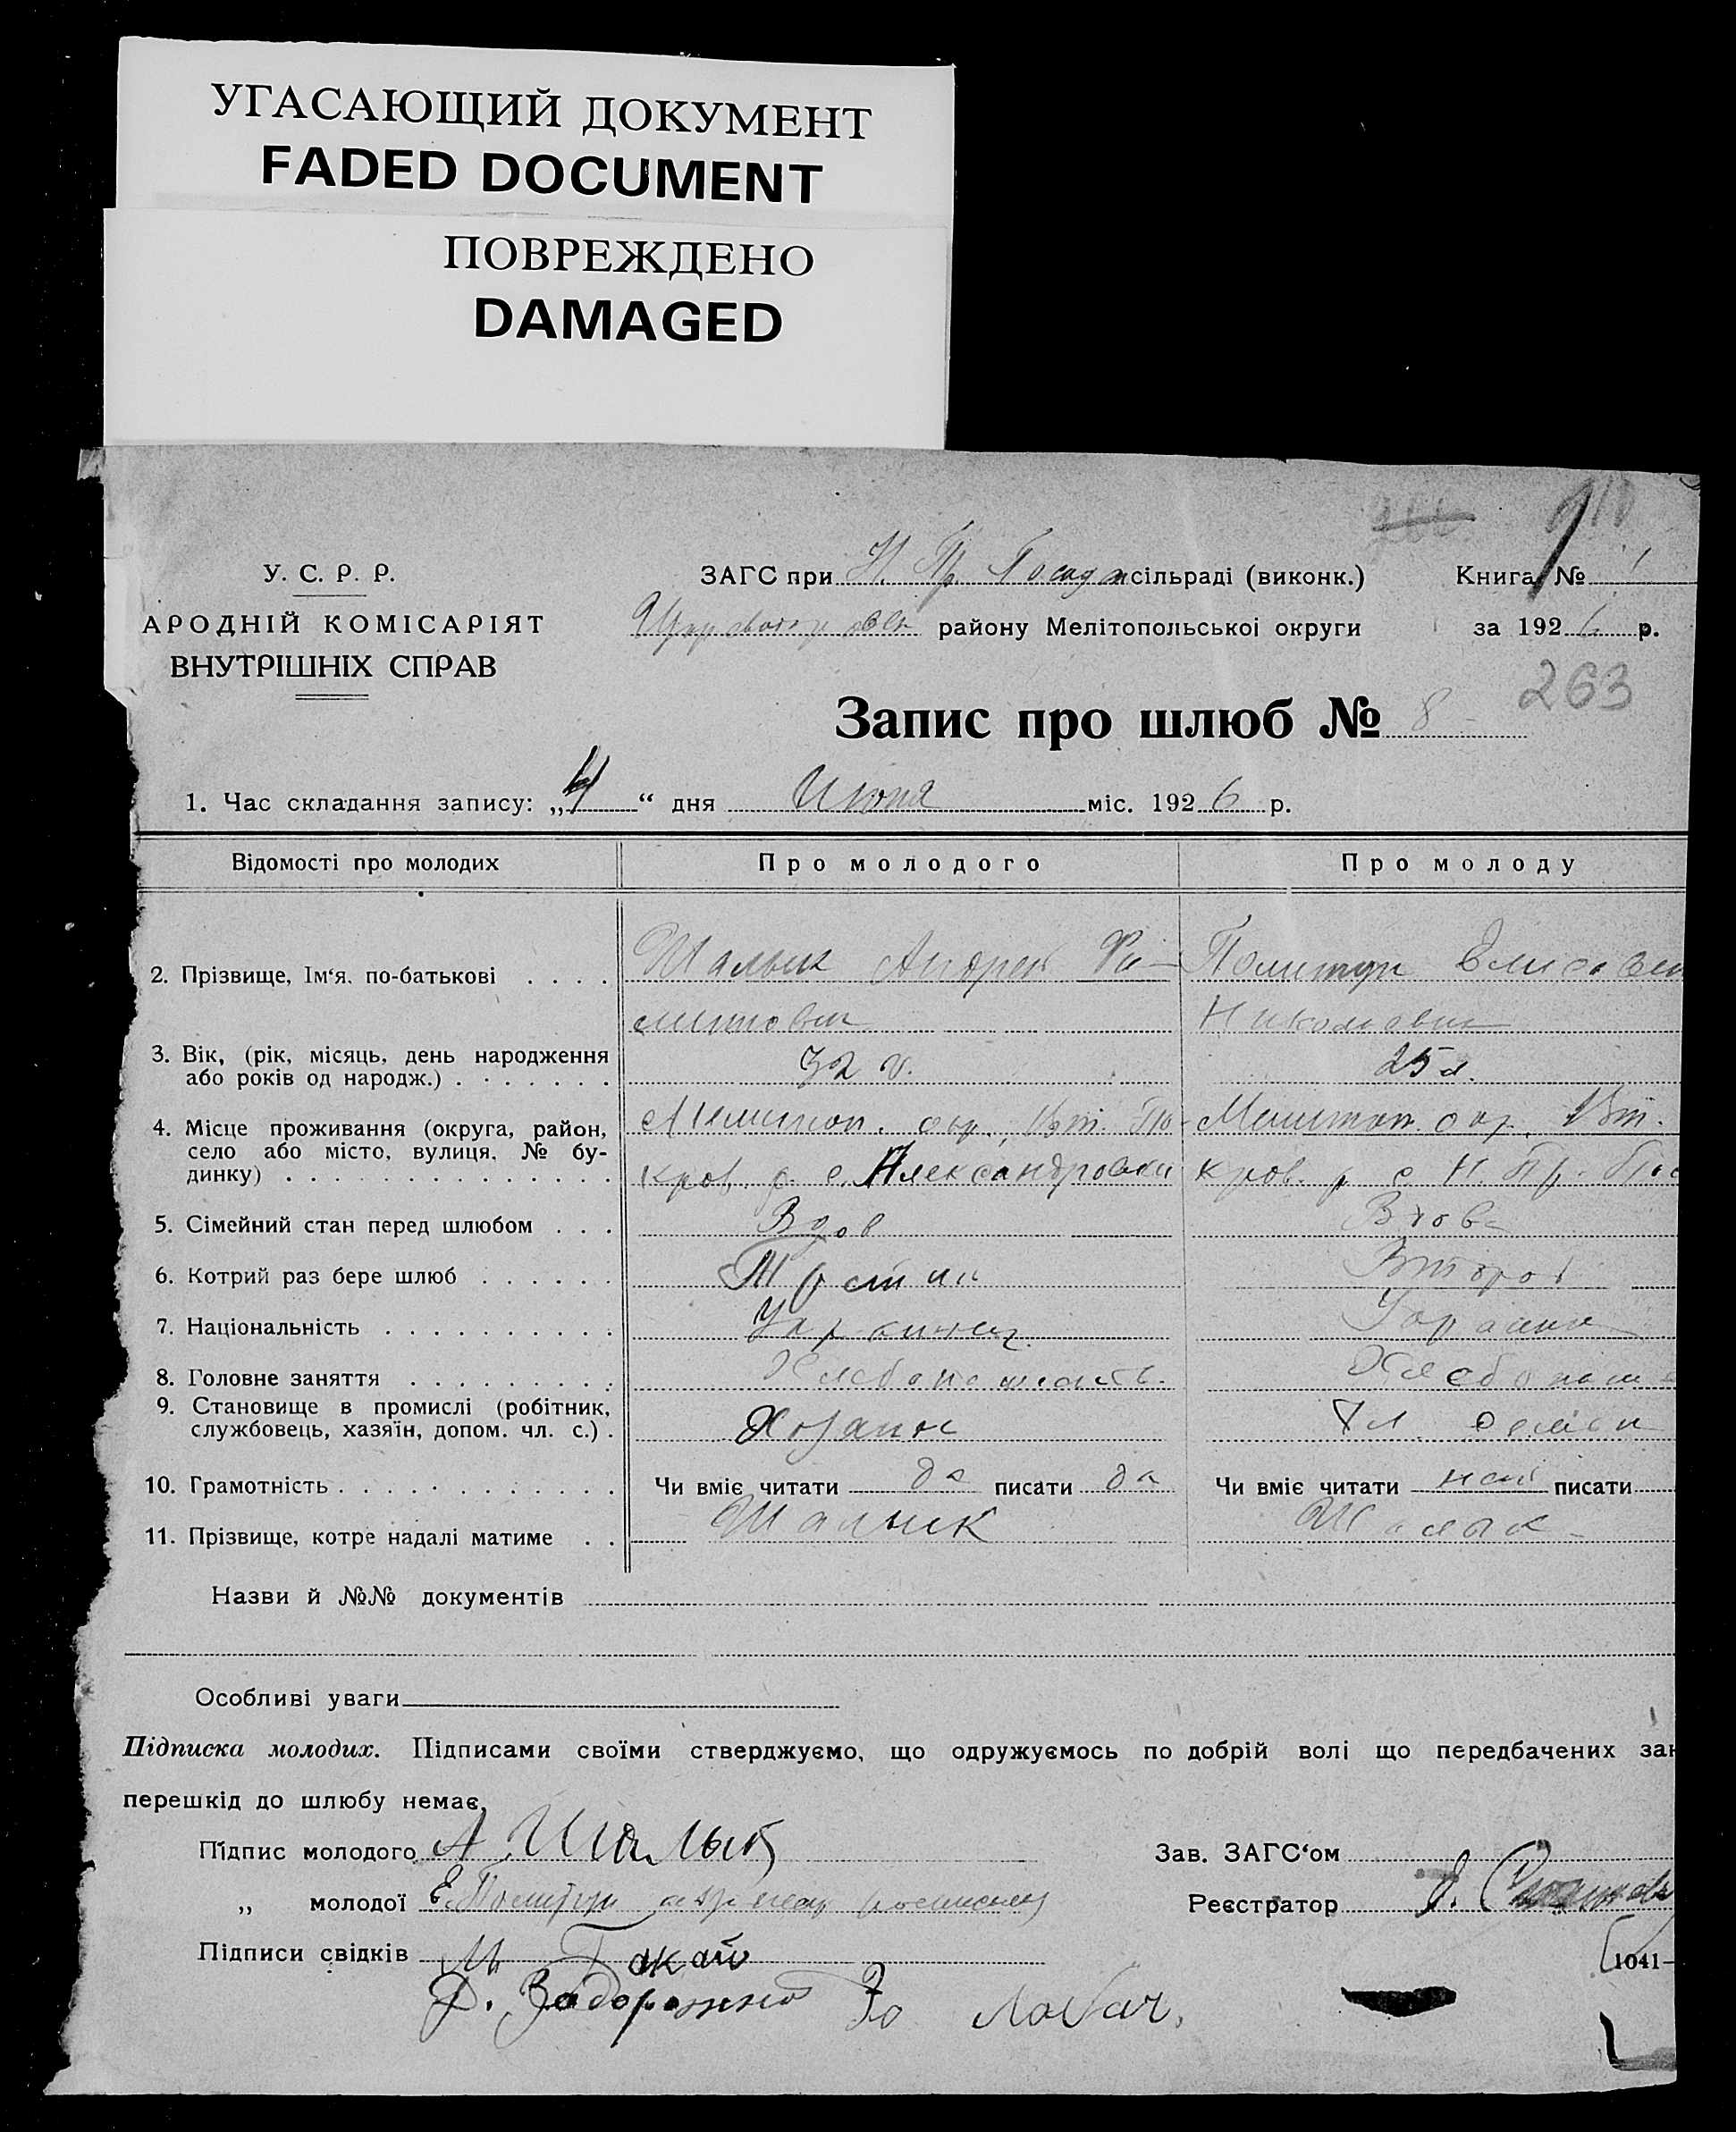 УГАСАЮЩИЙ ДОКУМЕНТ
FADED DOCUMENT
ПОВРЕЖДЕНО
DAMAGED
У. С. Р. Р.
АРОДНІЙ КОМІСАРІЯТ
ВНУТРІШНІХ СПРАВ
ЗАГС при Н. Пр. Посад сільраді (виконк.) Книга №
району Мелітопольської округи за 192 р.
263
Запис про шлюб № 8
1. Час складання запису: „4“ дня міс. 1926 р.
Відомості про молодих Про молодого Про молоду
2. Прізвище, Ім‘я, по-батькові . . . . Шалык Андрей Фи- Политур Елисаве
липпович Николаевна
3. Вік, (рік, місяць, день народження
або років од народж.) . . . . . . . 32 г. 25 л.
4. Місце проживання (округа, район,
село або місто, вулиця, № бу-
динку) . . . . . . . . . . . . . . Мелитоп. окр., По- Мелитоп. окр.
кров. р. с. Александровки кров. р с Н. Пр. Пос
5. Сімейний стан перед шлюбом . . . Вдов Вдова
6. Котрий раз бере шлюб . . . . . . Третий Второй
7. Національність . . . . . . . . . . Украинец Украинка
8. Головне заняття . . . . . . . . . Хлебопашест. Хлебопаш
9. Становище в промислі (робітник,
службовець, хазяїн, допом. чл. с.) . Хозяин Чл. семьи
10. Грамотність . . . . . . . . . . . . Чи вміє читати да писати да Чи вміє читати нет писати
11. Прізвище, котре надалі матиме . . Шалык Шалык
Назви й №№ документів
Особливі уваги
Підписка молодих. Підписами своїми стверджуємо, що одружуємось по добрій волі що передбачених зак
перешкід до шлюбу немає.
Підпис молодого А Шалык Зав. ЗАГС‘ом
„ молодої Е. Политур Реєстратор
Підписи свідків М Гакало
Ф. Задорожно Ю Лобач.
1041—